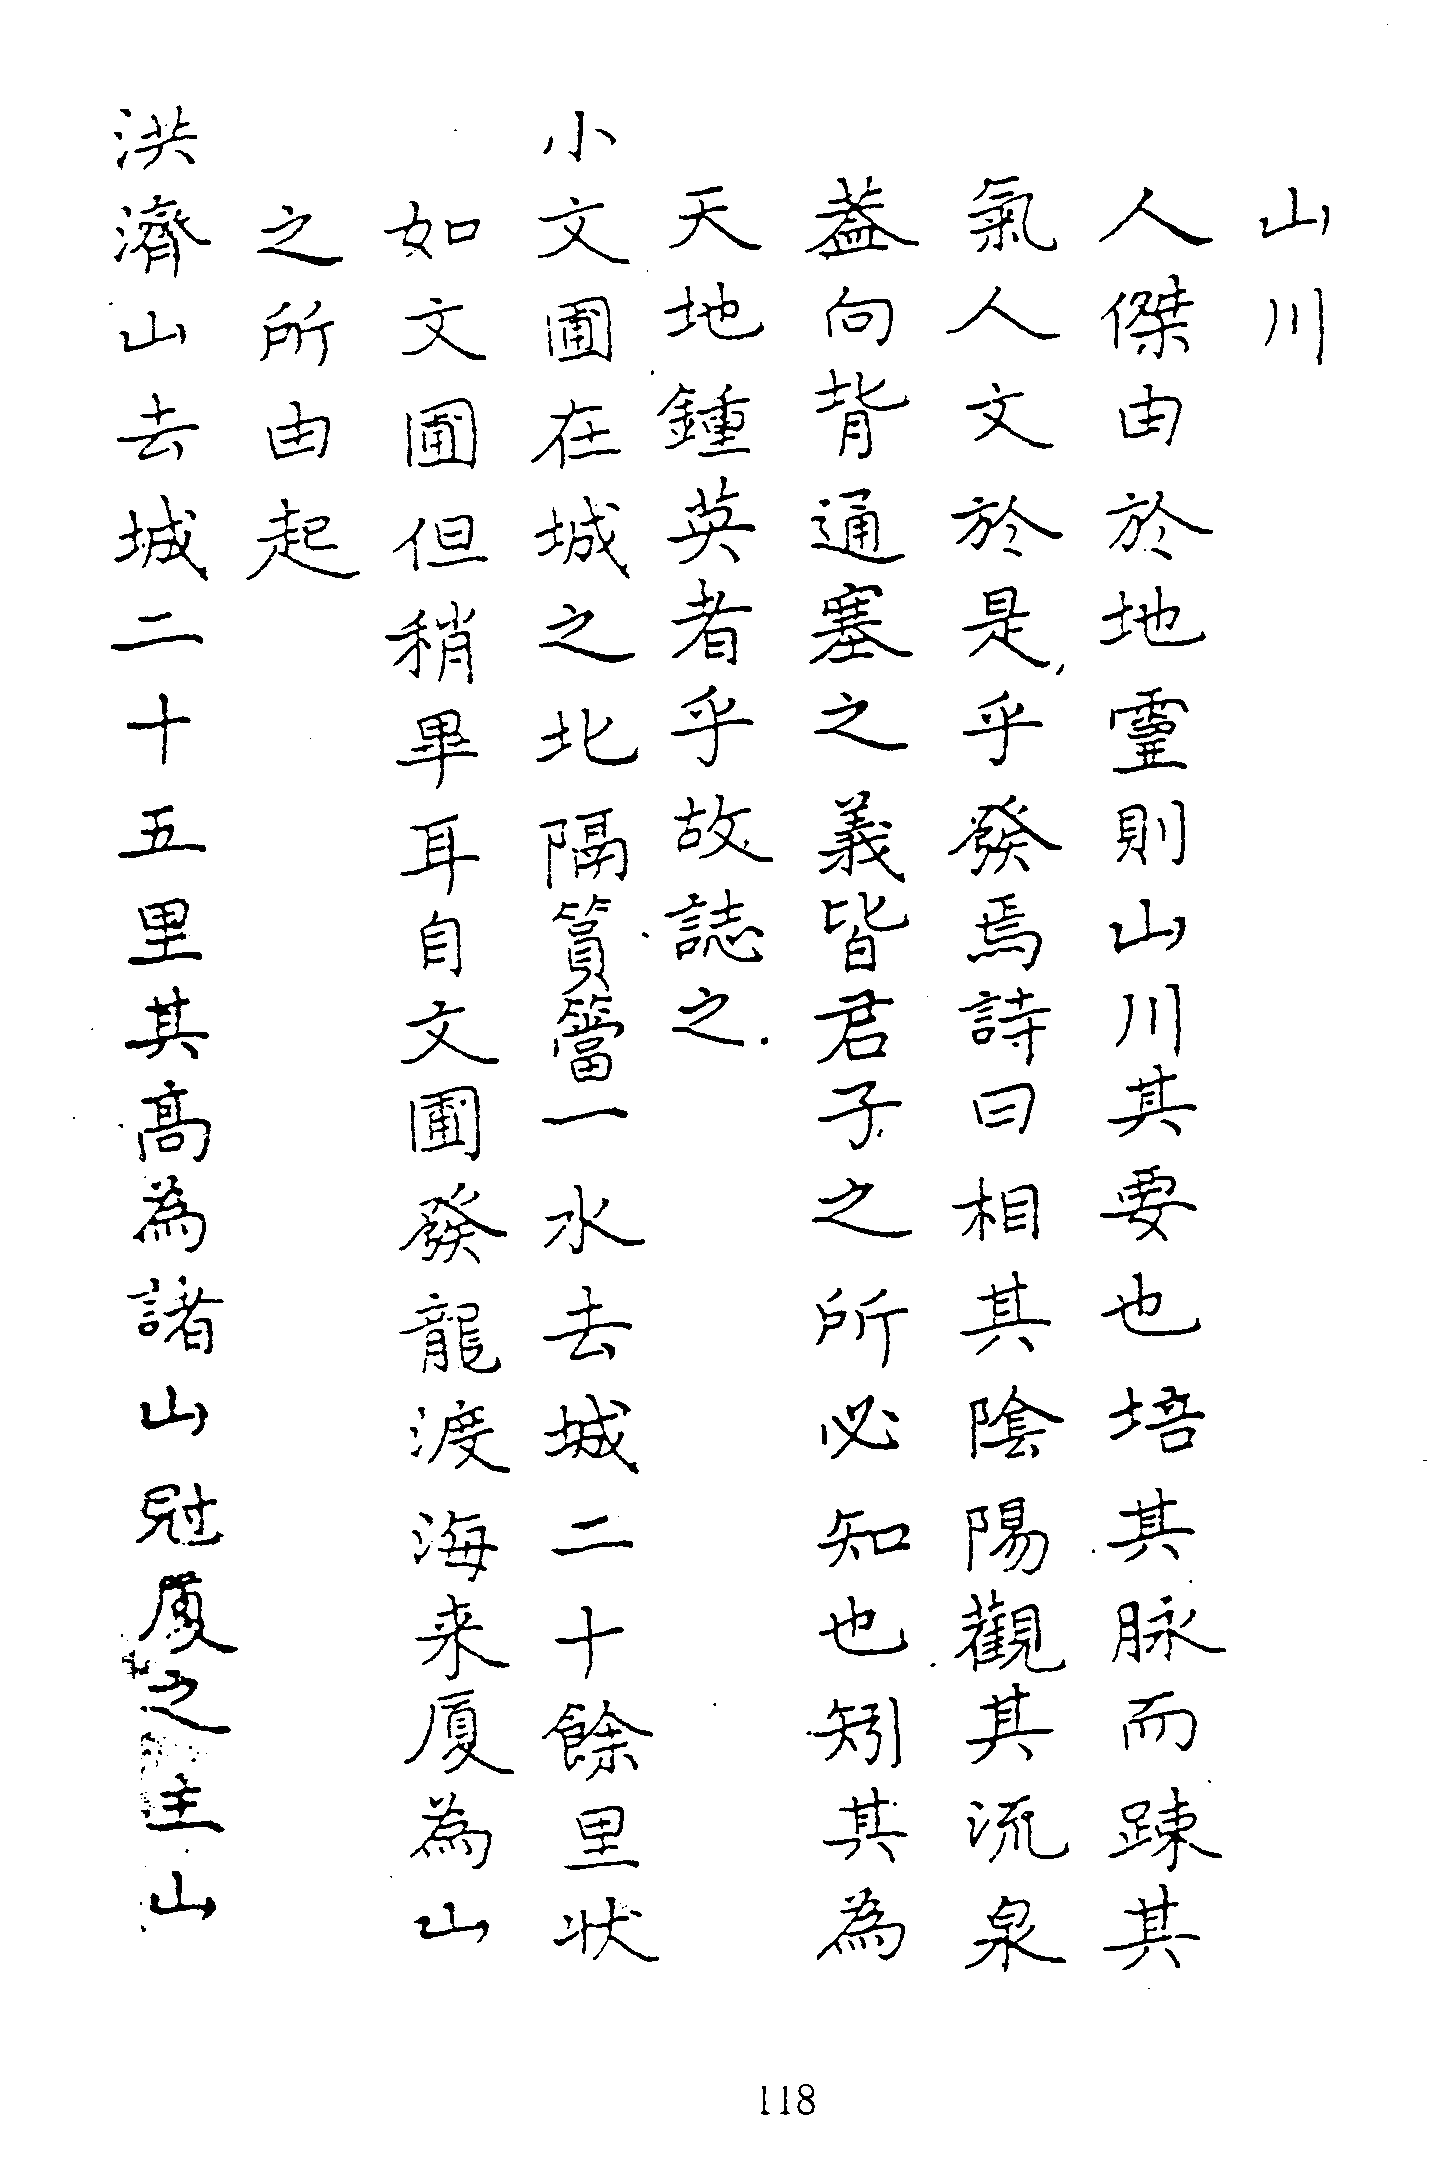 山川
人傑由於地靈則山川其要也培其脉而踈其
氣人文於是乎發焉詩曰相其陰陽觀其流泉
葢向背通塞之義皆君子之所必知也矧其為
天地鍾英者乎故誌之
小文圃在城之北隔篔簹一水去城二十餘里状
如文圃但稍畢耳自文圃發龍渡海来厦為山
之所由起
洪濟山去城二十五里其高為諸山冠厦之主山
118